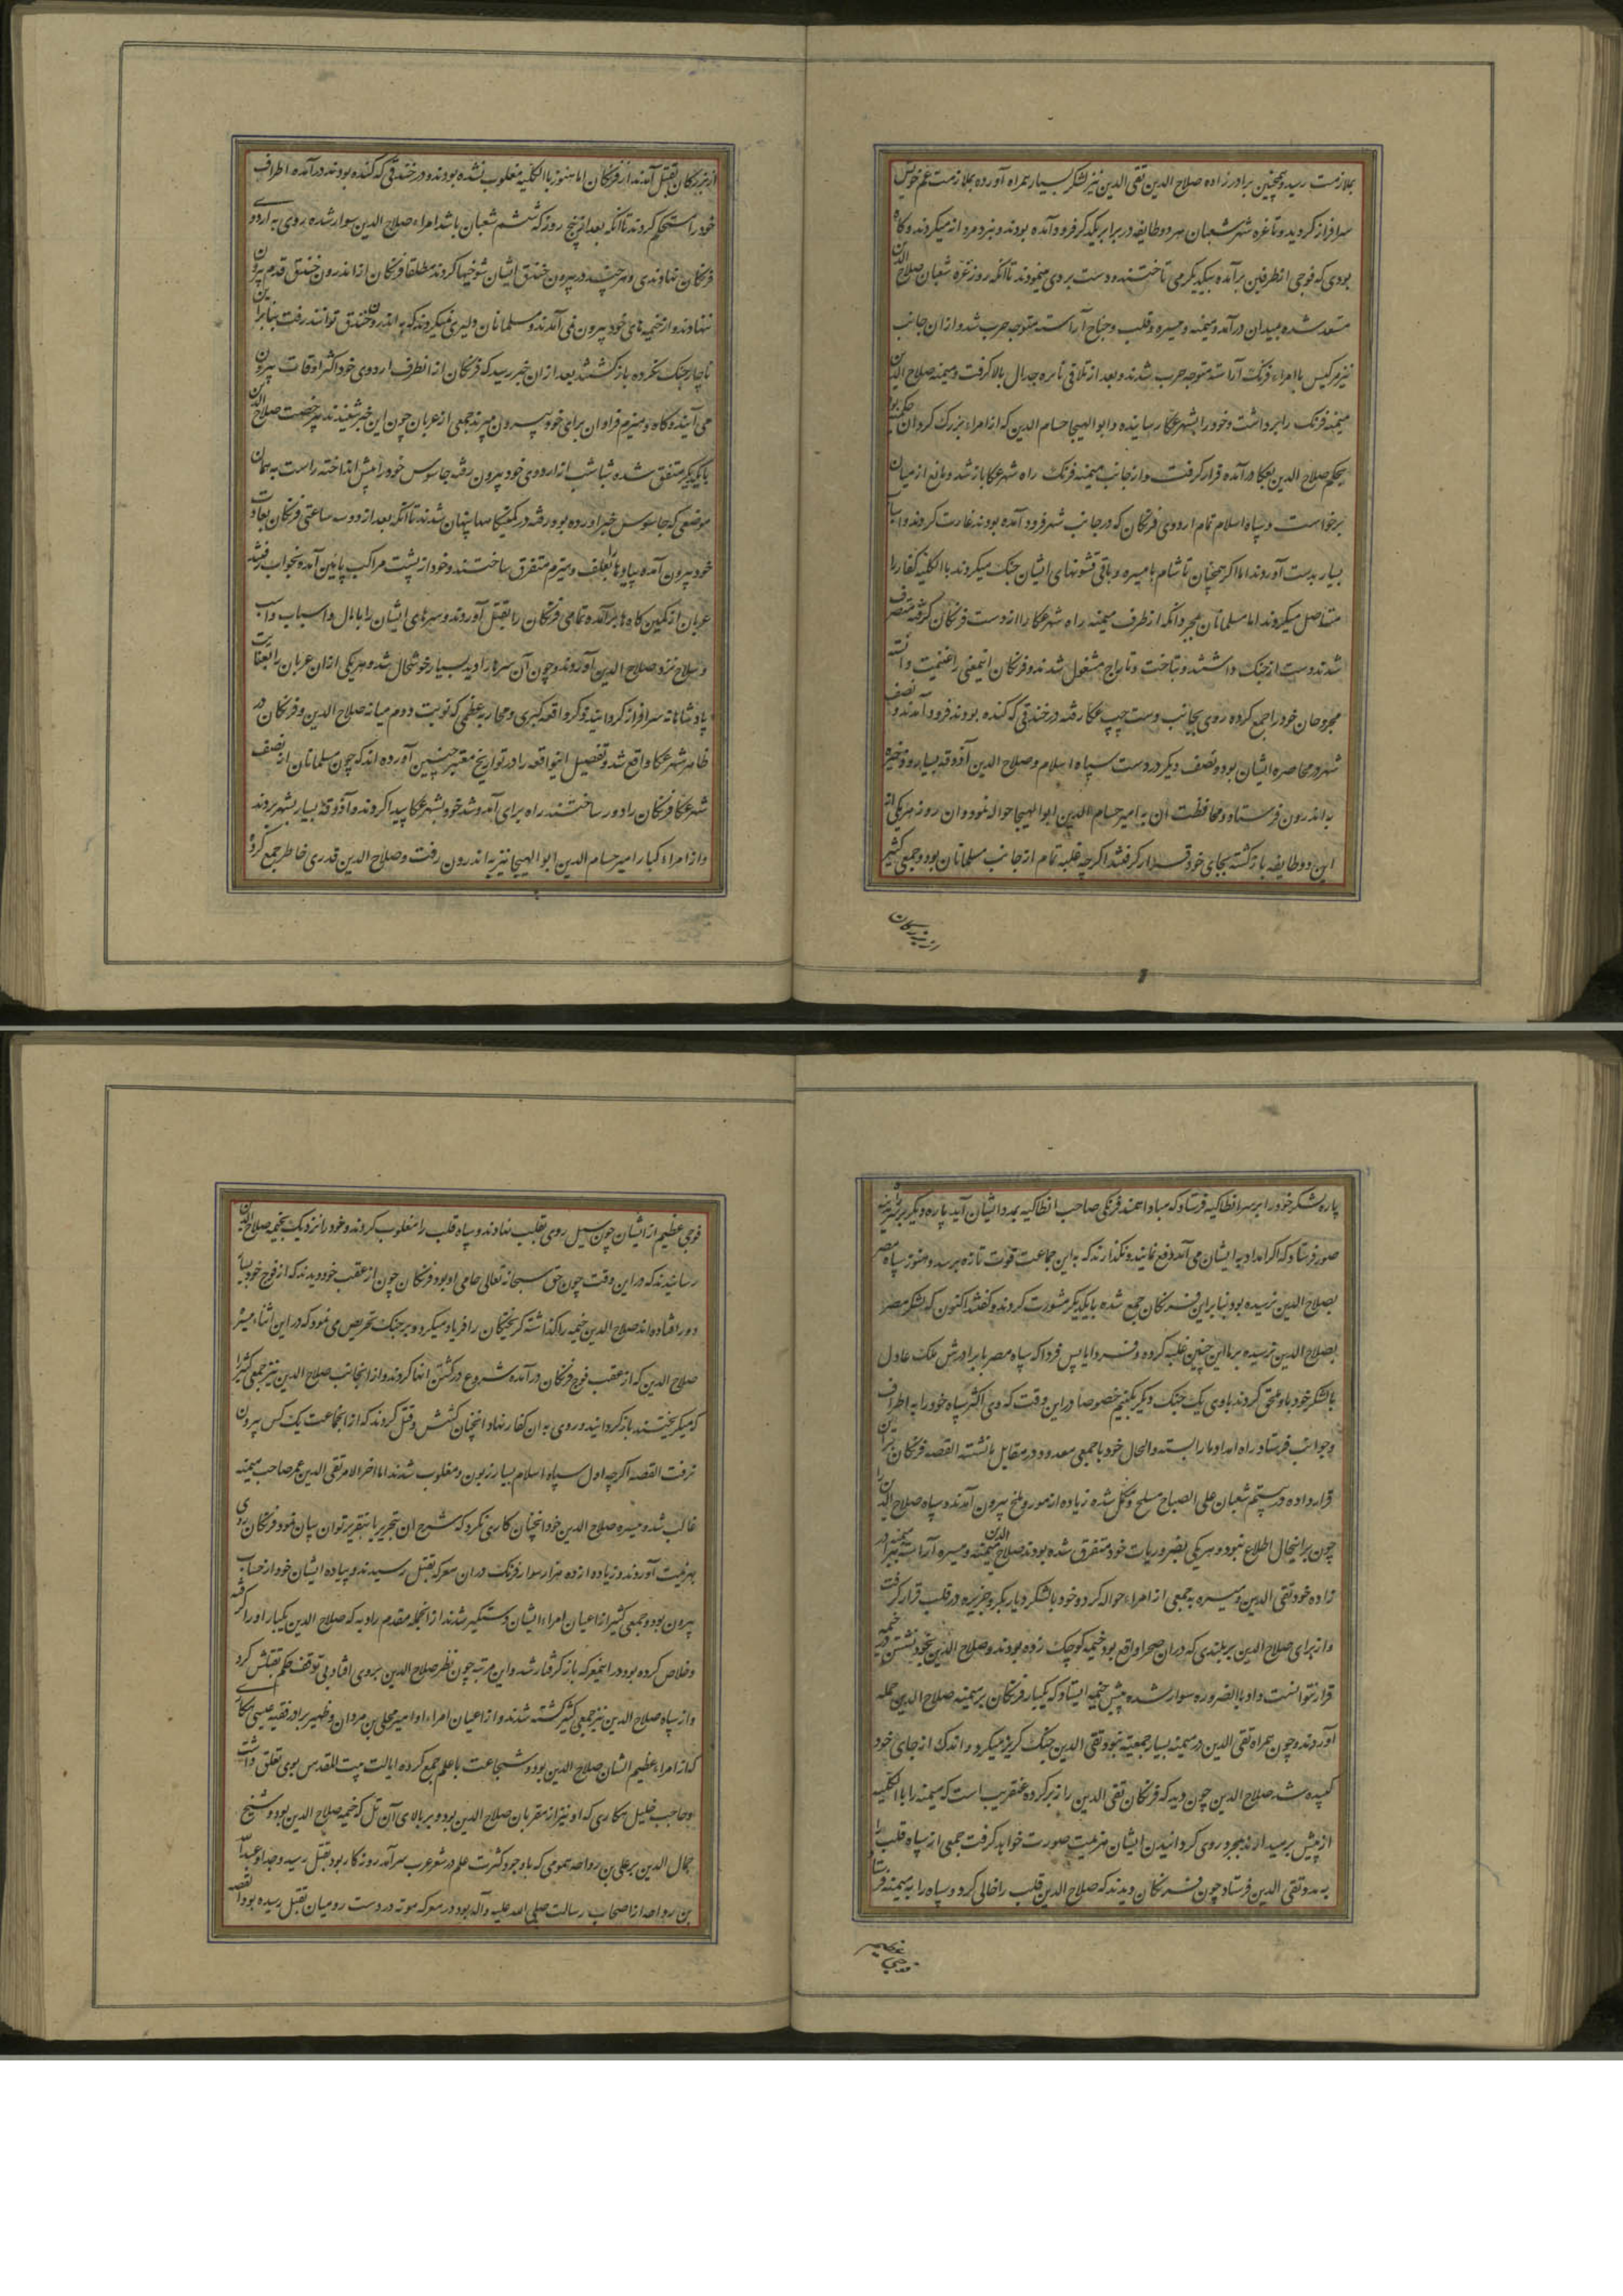 بملازمت رسید و همچنین برادرزاده صلاح الدین تقی الدین نیز لشکر بسیار همراه آورده بملازمت عم خویش
سرافراز کردید و تا غره شهر شعبان هر دو طایفه در برابر یکدیکر فرود آمده بودند و نبرد مردانه میکردند و کاه
بودی که فوجی از طرفین برآمده بیکدیکر می تاختند و دست بردی مینمودند تا آنکه روز غره شعبان صلاح الدین
مستعد شده بمیدان درآمد و میمنه و میسره و قلب و جناح آراسته متوجه حرب شد و از ان جانب
نیز مرکیس با امراء فرنک آراسته متوجه حرب شدند و بعد از تلاقی نایره جدال بالا کرفت و میمنه صلاح الدین
میمنه فرنک را برداشت و خود را بشهر عکا رسانیده و ابو الهیجا حسام الدین که از امراء بزرک کردان حکمیه بود
بحکم صلاح الدین بعکا درآمده قرار کرفت و از جانب میمنه فرنک راه شهر عکا باز شد و مانع از میان
برخواست و سپاه اسلام تمام اردوی فرنکان که در جانب شهر فرود آمده بودند غارت کردند و اسباب
بسیار بدست آوردند اما اکر همچنان تا شام با میسره و باقی قشونهای ایشان جنک میکردند باالکلیه کفار را
مستاصل میکردند اما مسلمانان بمجرد آنکه از طرف میمنه راه شهر عکا را از دست فرنکان کرفته متصرف
شدند دست از جنک داشتند و بتاخت و تاراج مشغول شدند و فرنکان اینمعنی را غنیمت دانسته
مجروحان خود را جمع کرده روی بجانب دست چپ عکا رفته در خندقی که کنده بودند فرود آمدند و نصف
شهر در محاصره ایشان بود و نصف دیکر در دست سپاه اسلام و صلاح الدین آذوقه بسیار و ذخیره
به اندرون فرستاد و محافظت آن به امیر حسام الدین ابو الهیجا حواله نمود و ان روز هر یکی از
این دو طایفه بازکشته بجای خود قرار کرفتند اکرچه غلبه تمام از جانب مسلمانان بود و جمعی کثیر
از بزرکان
از بزرکان بقتل آمدند از فرنکان اما هنوز باالکلیه مغلوب نشده بودند و در خندقی که کنده بودند درآمده اطراف
خود را مستحکم کردند تا آنکه بعد از پنج روز که ششم شعبان باشد امراء صلاح الدین سوار شده روی به اردوی
فرنکان نهادندی و هر چند در بیرون خندق ایشان شوخیها کردند مطلقا فرنکان از اندرون خندق قدم بیرون
ننهادند و از خیمه های خود بیرون نمی آمدند و مسلمانان دلیری نمیکردند که به اندرون خندق توانند رفت بنابراین
ناچار جنک نکرده بازکشتند بعد از ان خبر رسید که فرنکان از انطرف اردوی خود اکثر اوقات بیرون
می آیند و کاه و هیزم فراوان برای خود بیرون میبرند جمعی از عربان چون این خبر شنیدند برخصت صلاح الدین
با یکدیکر متفق شده شباشب از اردوی خود بیرون رفته جاسوس خود را پیش انداخته راست به همان
موضعی که جاسوس خبر آورده بود رفته در کمینکاهها پنهان شدند تا آنکه بعد از دو سه ساعتی فرنکان بعادت
خود بیرون آمده پیاوها را بعلف و هیزم متفرق ساختند و خود از پشت مراکب پایین آمده بخواب رفتند
عربان از کمین کاه ها برآمده تمامی فرنکان را بقتل آوردند و سرهای ایشان را با مال و اسباب و اسپ
و سلاح نزد صلاح الدین آوردند و چون آن سرها را دید بسیار خوشحال شد و هر یکی از ان عربان را بعنایت
پادشاهانه سرافراز کردانید و ذکر واقعه کبری و محاربه عظمی که نوبت دوم میانه صلاح الدین و فرنکان در
ظاهر شهر عکا واقع شد و تفصیل اینواقعه را در تواریخ معتبر چنین آورده اند که چون مسلمانان از نصف
شهر عکا فرنکان را دور ساختند راه برای آمد و شد خود بشهر عکا پیدا کردند و آذوقه بسیار بشهر بردند
و از امراء کبار امیر حسام الدین ابو الهیجا نیز به اندرون رفت و صلاح الدین قدری خاطر جمع کرده
پاره لشکر خود را بر سر انطاکیه فرستاد که مبادا حمند فرنکی صاحب انطاکیه بمدد ایشان آید و پاره دیکر بر سر شهر
صور فرستاد که اکر امداد به ایشان می آمد دفع نمایند و نکذارند که به این جماعت قوت تازه برسد و هنوز سپاه مصر
بصلاح الدین نرسیده بود بنا براین فرنکان جمع شده با یکدیکر مشورت کردند و کفتند اکنون که لشکر مصر
بصلاح الدین نرسیده بر ما این چنین غلبه کرده و فردا یا پس فردا که سپاه مصر با برادرش ملک عادل
با لشکر خود باو ملحق کردند با وی یک جنک دیکر بکنیم خصوصا در این وقت که وی اکثر سپاه خود را به اطراف
و جوانب فرستاد راه امداد ما را بسته و الحال خود با جمعی معدود در مقابل ما نشسته القصه فرنکان بر این
قرار داده در بیستم شعبان علی الصباح مسلح و مکمل شده زیاده از مور و ملخ بیرون آمدند و سپاه صلاح الدین را
چون بر اینحال اطلاع نبود و هر یکی بضروریات خود متفرق شده بودند صلاح الدین میمنه و میسره آراسته میمنه را ببرادر
زاده خود تقی الدین و میسره به جمعی از امراء حواله کرده و خود با لشکر دیاربکر و جزیره در قلب قرار کرفت
و از برای صلاح الدین بر بلندی که در ان صحرا واقع بود خیمه کوچک زده بودند و صلاح الدین بخود نشستن در خیمه
قرار نتوانست داد باالضروره سوار شده پیش خیمه ایستاد که یکبار فرنکان بر میمنه صلاح الدین حمله
آوردند و چون همراه تقی الدین در میمنه بسیار جمعیت نبود تقی الدین جنک کریز میکرد و اندک از جای خود
کمپیده شد صلاح الدین چون دید که فرنکان تقی الدین را زبر کرده عنقریب است که میمنه را باالکلیه
از پیش بر میدارند بمجرد روی کردانیدن ایشان هزیمت صورت خواهد کرفت جمعی از سپاه قلب را
به مدد تقی الدین فرستاد چون فرنکان دیدند که صلاح الدین قلب را خالی کرد و سپاه را به میمنه فرستاد
فوجی عظیم
فوجی عظیم از ایشان چون سیل روی بقلب نهادند و سپاه قلب را مغلوب کردند و خود را نزدیک بخیمه صلاح الدین
رسانیدند که در این وقت چون حق سبحانه تعالی حامی او بود فرنکان چون از عقب خود دیدند که از فوج خود بسیار
دور افتاده اند صلاح الدین خیمه را کذاشته کریختکان را فریاد میکرد و بر جنک تحریص می نمود که در این اثناء میسره
صلاح الدین که از عقب فوج فرنکان درآمده شروع در کشتن انها کردند و از اینجانب صلاح الدین نیز جمعی کثیر را
که میکریختند بازکردانیده و روی به ان کفار نهاد و انچنان کشش و قتل کردند که از انجماعت یک کس بیرون
نرفت القصه اکرچه اول سپاه اسلام بسیار زبون و مغلوب شدند اما اخر الامر تقی الدین عمر صاحب میمنه
غالب شد و میسره صلاح الدین خود انچنان کاری نکرد که شرح ان بتحریر یا بتقریر توان بیان نمود و فرنکان روی
بهزیمت آوردند و زیاده از ده هزار سوار فرنک در ان معرکه بقتل رسیدند و پیاده ایشان خود از حساب
بیرون بود و جمعی کثیر از اعیان امراء ایشان دستکیر شدند از انجمله مقدم راویه که صلاح الدین یکبار او را کرفته
و خلاص کرده بود در اینمعرکه باز کرفتار شد و این مرتبه چون نظر صلاح الدین بروی افتاد بی توقف حکم بقتلش کرد
و از سپاه صلاح الدین نیز جمعی کثیر کشته شدند و از اعیان امراء او امیر محلی بن مردان و ظهیر برادر فقیه عیسی هکاری
که از امراء عظیم الشان صلاح الدین بود و شجاعت با علم جمع کرده ایالت بیت المقدس بوی تعلق داشت
و حاجب خلیل هکاری که او نیز از مقربان صلاح الدین بود و بر بالای آن تل که خیمه صلاح الدین بود و شیخ
جمال الدین بر علی بن رواحه حموی که باوجود کثرت علم در شعر عرب سرآمد روزکار بود بقتل رسید و جد او عبدالله
بن رواحه از اصحاب رسالت صلی الله علیه و آله بود در معرکه موته در دست رومیان بقتل رسیده بود القصه